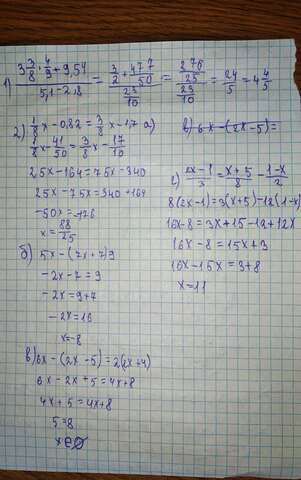 1) (3 3/8 · 4/9 + 9,54) / (5,1 - 2,8) = (3/2 + 477/50) / (23/10) = (276/25) / (23/10) = 24/5 = 4 4/5
2) 1/8 x - 0,82 = 3/8 x - 1,7 а)
1/8 x - 41/50 = 3/8 x - 17/10
25x - 164 = 75x - 340
25x - 75x = 340 + 164
-50x = -176
x = 88/25
б) 5x - (7x + 7) 9
-2x - 7 = 9
-2x = 9 + 7
-2x = 16
x = -8
в) 6x - (2x - 5) = 2(2x + 4)
6x - 2x + 5 = 4x + 8
4x + 5 = 4x + 8
5 = 8
x ∈ ∅
в) 6x - (2x - 5) =
г) (2x - 1)/3 = (x + 5)/8 - (1 - x)/2
8(2x - 1) = 3(x + 5) - 12(1 - x)
16x - 8 = 3x + 15 - 12 + 12x
16x - 8 = 15x + 3
16x - 15x = 3 + 8
x = 11